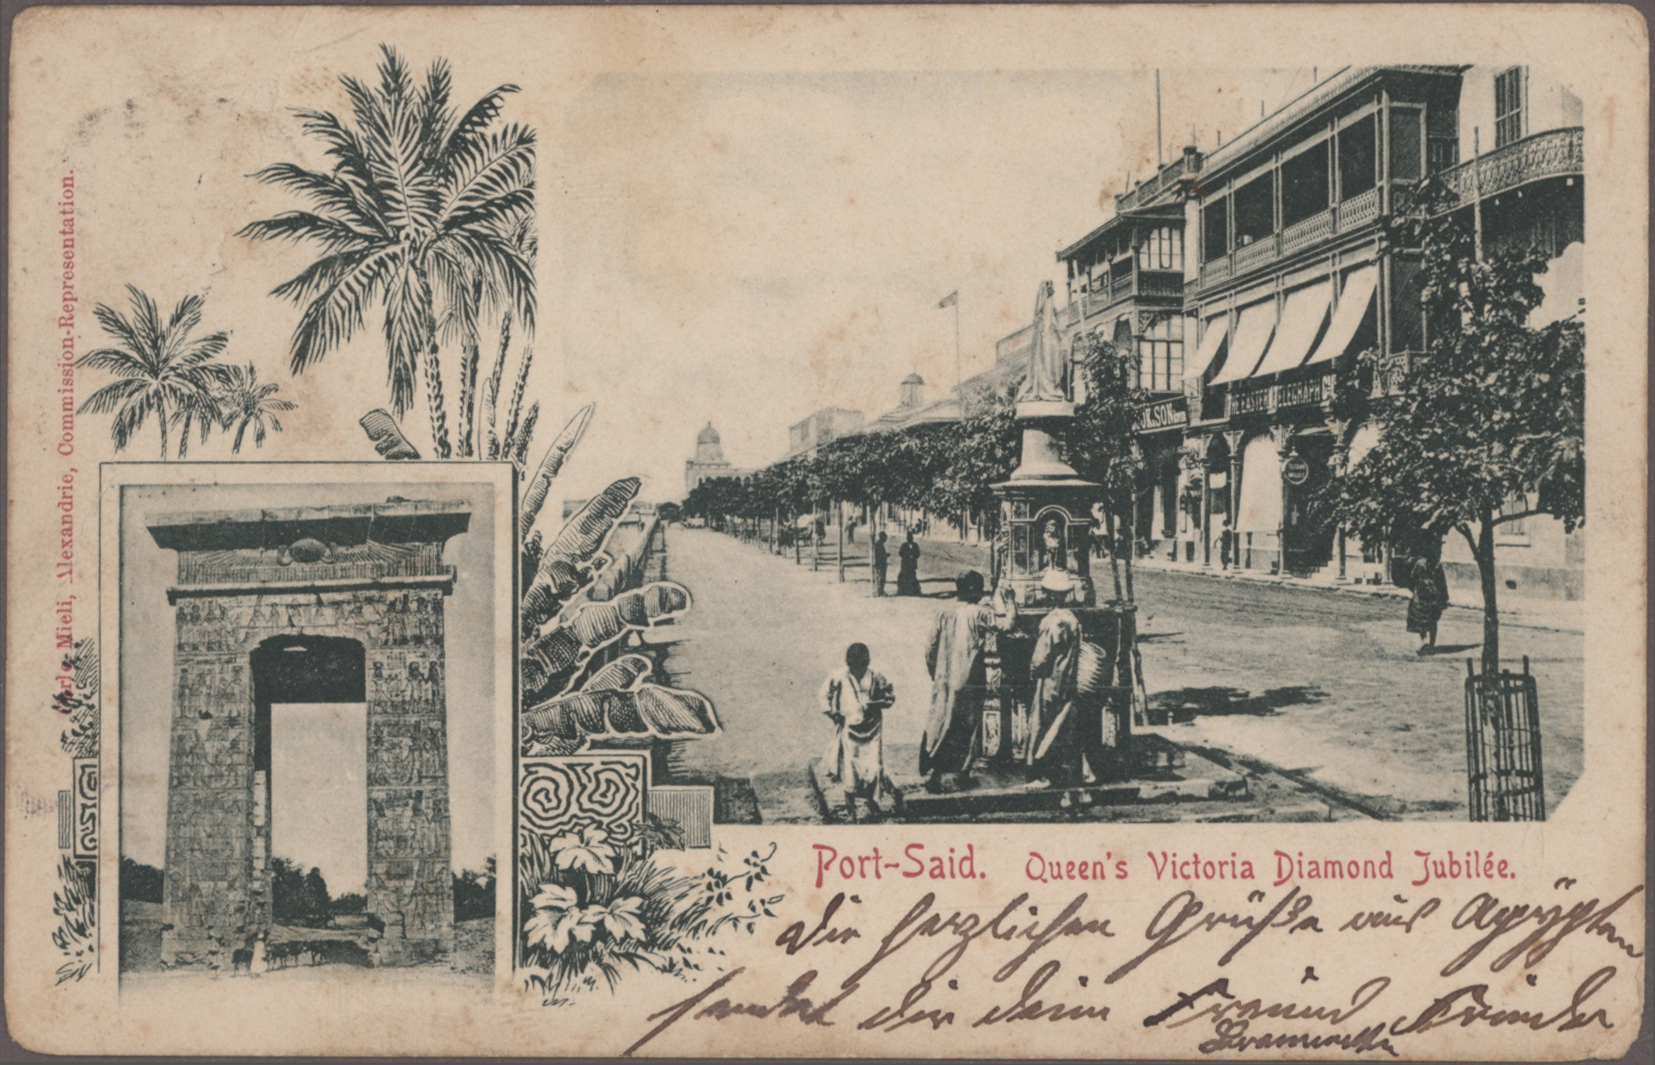 Carlo Mieli, Alexandrie, Commission-Representation.
THE EASTERN TELEGRAPH Co
& SON
Port-Said. Queen's Victoria Diamond Jubilée.
Die herzlichen Grüße aus Agypten
sendet dir dein Freund